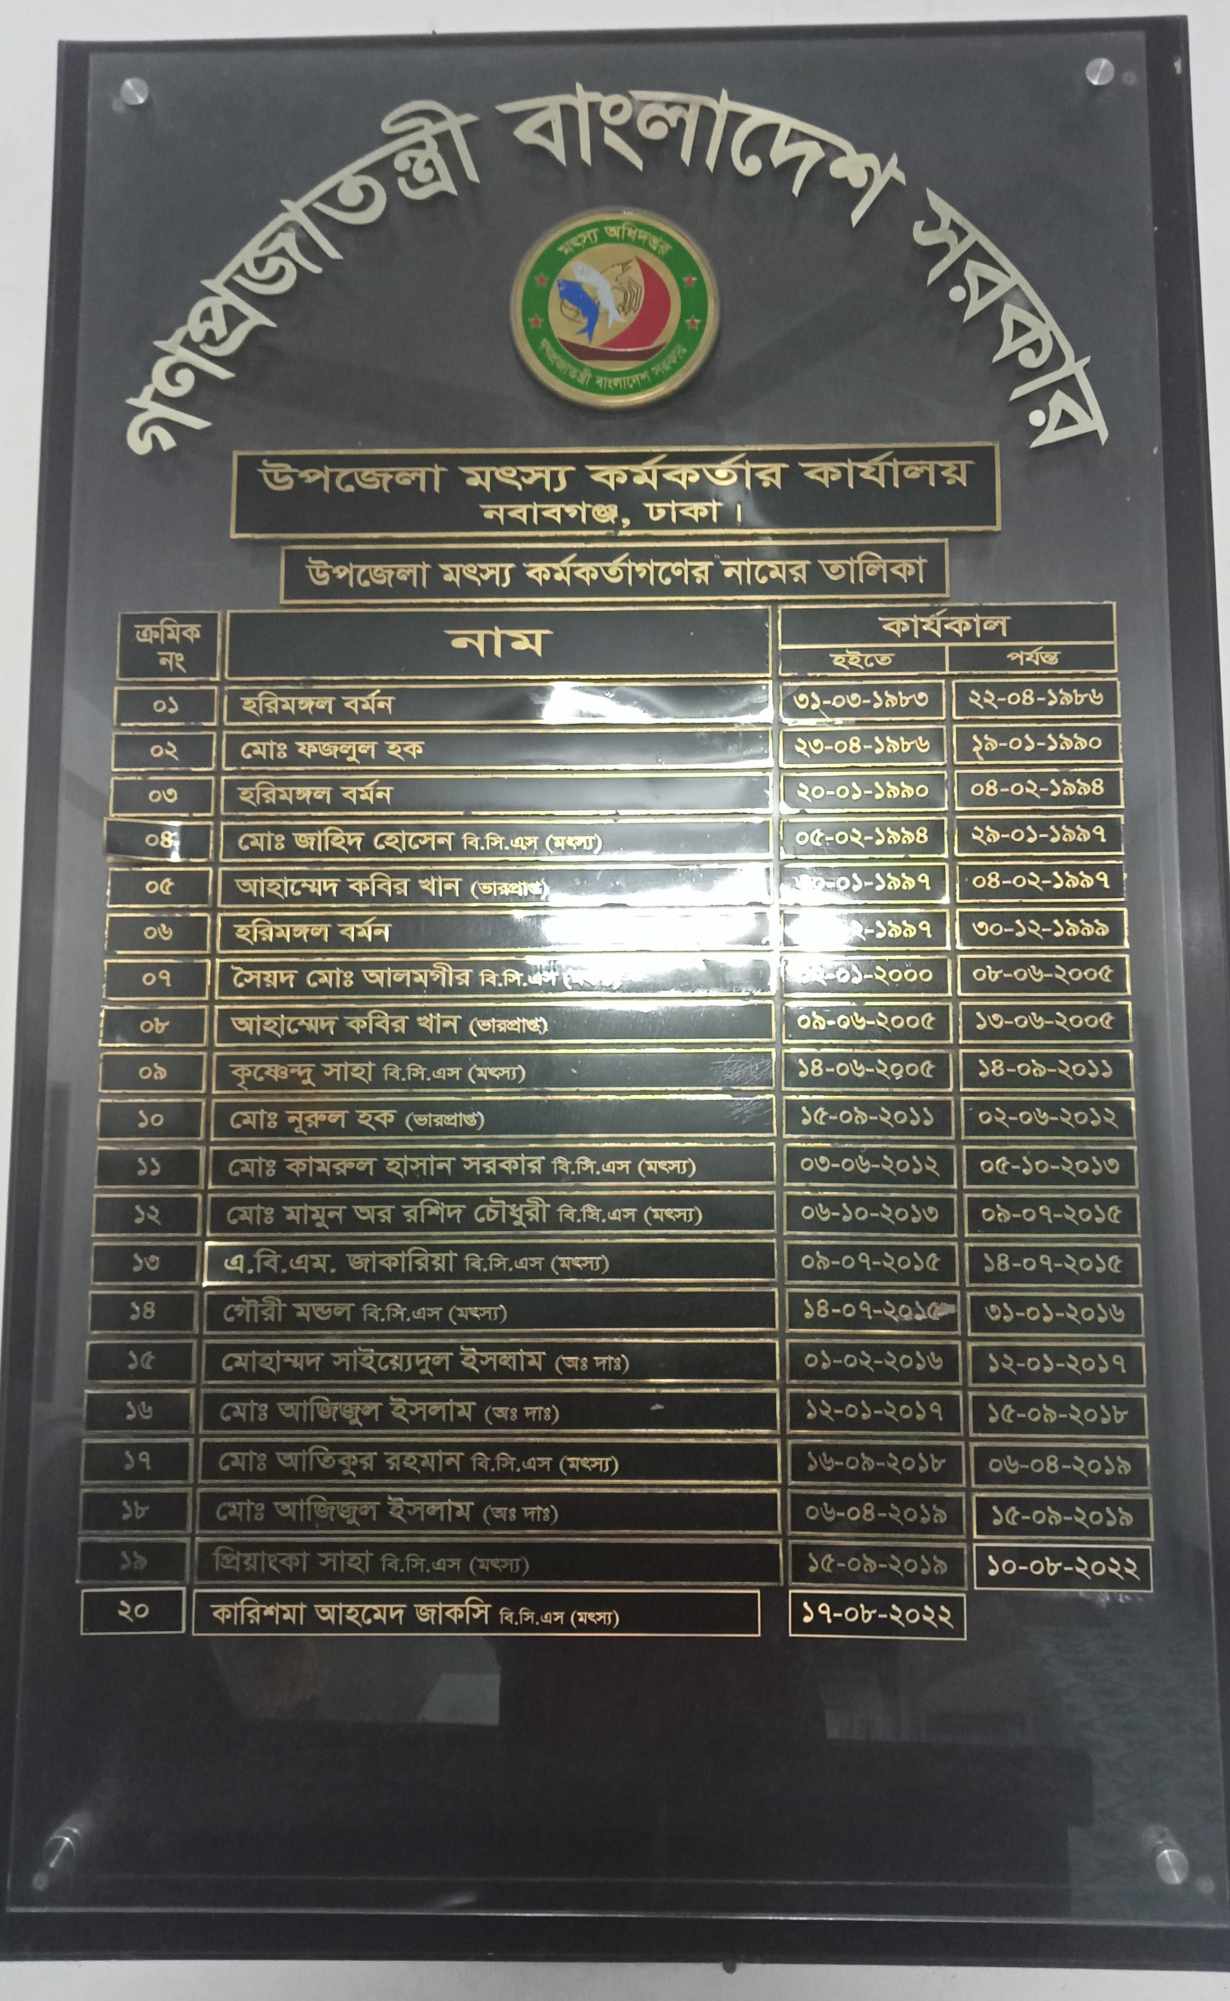 গণপ্রজাতন্ত্রী বাংলাদেশ সরকার
মৎস্য অধিদপ্তর
গণপ্রজাতন্ত্রী বাংলাদেশ সরকার
উপজেলা মৎস্য কর্মকর্তার কার্যালয়
নবাবগঞ্জ, ঢাকা।
উপজেলা মৎস্য কর্মকর্তাগণের নামের তালিকা
ক্রমিক নং নাম কার্যকাল
হইতে পর্যন্ত
০১ হরিমঙ্গল বর্মন ৩১-০৩-১৯৮৩ ২২-০৪-১৯৮৬
০২ মোঃ ফজলুল হক ২৩-০৪-১৯৮৬ ১৯-০১-১৯৯০
০৩ হরিমঙ্গল বর্মন ২০-০১-১৯৯০ ০৪-০২-১৯৯৪
০৪ মোঃ জাহিদ হোসেন বি.সি.এস (মৎস্য) ০৫-০২-১৯৯৪ ২৯-০১-১৯৯৭
০৫ আহাম্মেদ কবির খান (ভারপ্রাপ্ত) ০৪-০২-১৯৯৭
০৬ হরিমঙ্গল বর্মন ৩০-১২-১৯৯৯
০৭ সৈয়দ মোঃ আলমগীর বি.সি.এস ০৮-০৬-২০০৫
০৮ আহাম্মেদ কবির খান (ভারপ্রাপ্ত) ০৯-০৬-২০০৫ ১৩-০৬-২০০৫
০৯ কৃষ্ণেন্দু সাহা বি.সি.এস (মৎস্য) ১৪-০৬-২০০৫ ১৪-০৯-২০১১
১০ মোঃ নূরুল হক (ভারপ্রাপ্ত) ১৫-০৯-২০১১ ০২-০৬-২০১২
১১ মোঃ কামরুল হাসান সরকার বি.সি.এস (মৎস্য) ০৩-০৬-২০১২ ০৫-১০-২০১৩
১২ মোঃ মামুন অর রশিদ চৌধুরী বি.সি.এস (মৎস্য) ০৬-১০-২০১৩ ০৯-০৭-২০১৫
১৩ এ.বি.এম. জাকারিয়া বি.সি.এস (মৎস্য) ০৯-০৭-২০১৫ ১৪-০৭-২০১৫
১৪ গৌরী মন্ডল বি.সি.এস (মৎস্য) ১৪-০৭-২০১৫ ৩১-০১-২০১৬
১৫ মোহাম্মদ সাইয়্যেদুল ইসলাম (অঃ দাঃ) ০১-০২-২০১৬ ১২-০১-২০১৭
১৬ মোঃ আজিজুল ইসলাম (অঃ দাঃ) ১২-০১-২০১৭ ১৫-০৯-২০১৮
১৭ মোঃ আতিকুর রহমান বি.সি.এস (মৎস্য) ১৬-০৯-২০১৮ ০৬-০৪-২০১৯
১৮ মোঃ আজিজুল ইসলাম (অঃ দাঃ) ০৬-০৪-২০১৯ ১৫-০৯-২০১৯
১৯ প্রিয়াংকা সাহা বি.সি.এস (মৎস্য) ১৫-০৯-২০১৯ ১০-০৮-২০২২
২০ কারিশমা আহমেদ জাকসি বি.সি.এস (মৎস্য) ১৭-০৮-২০২২